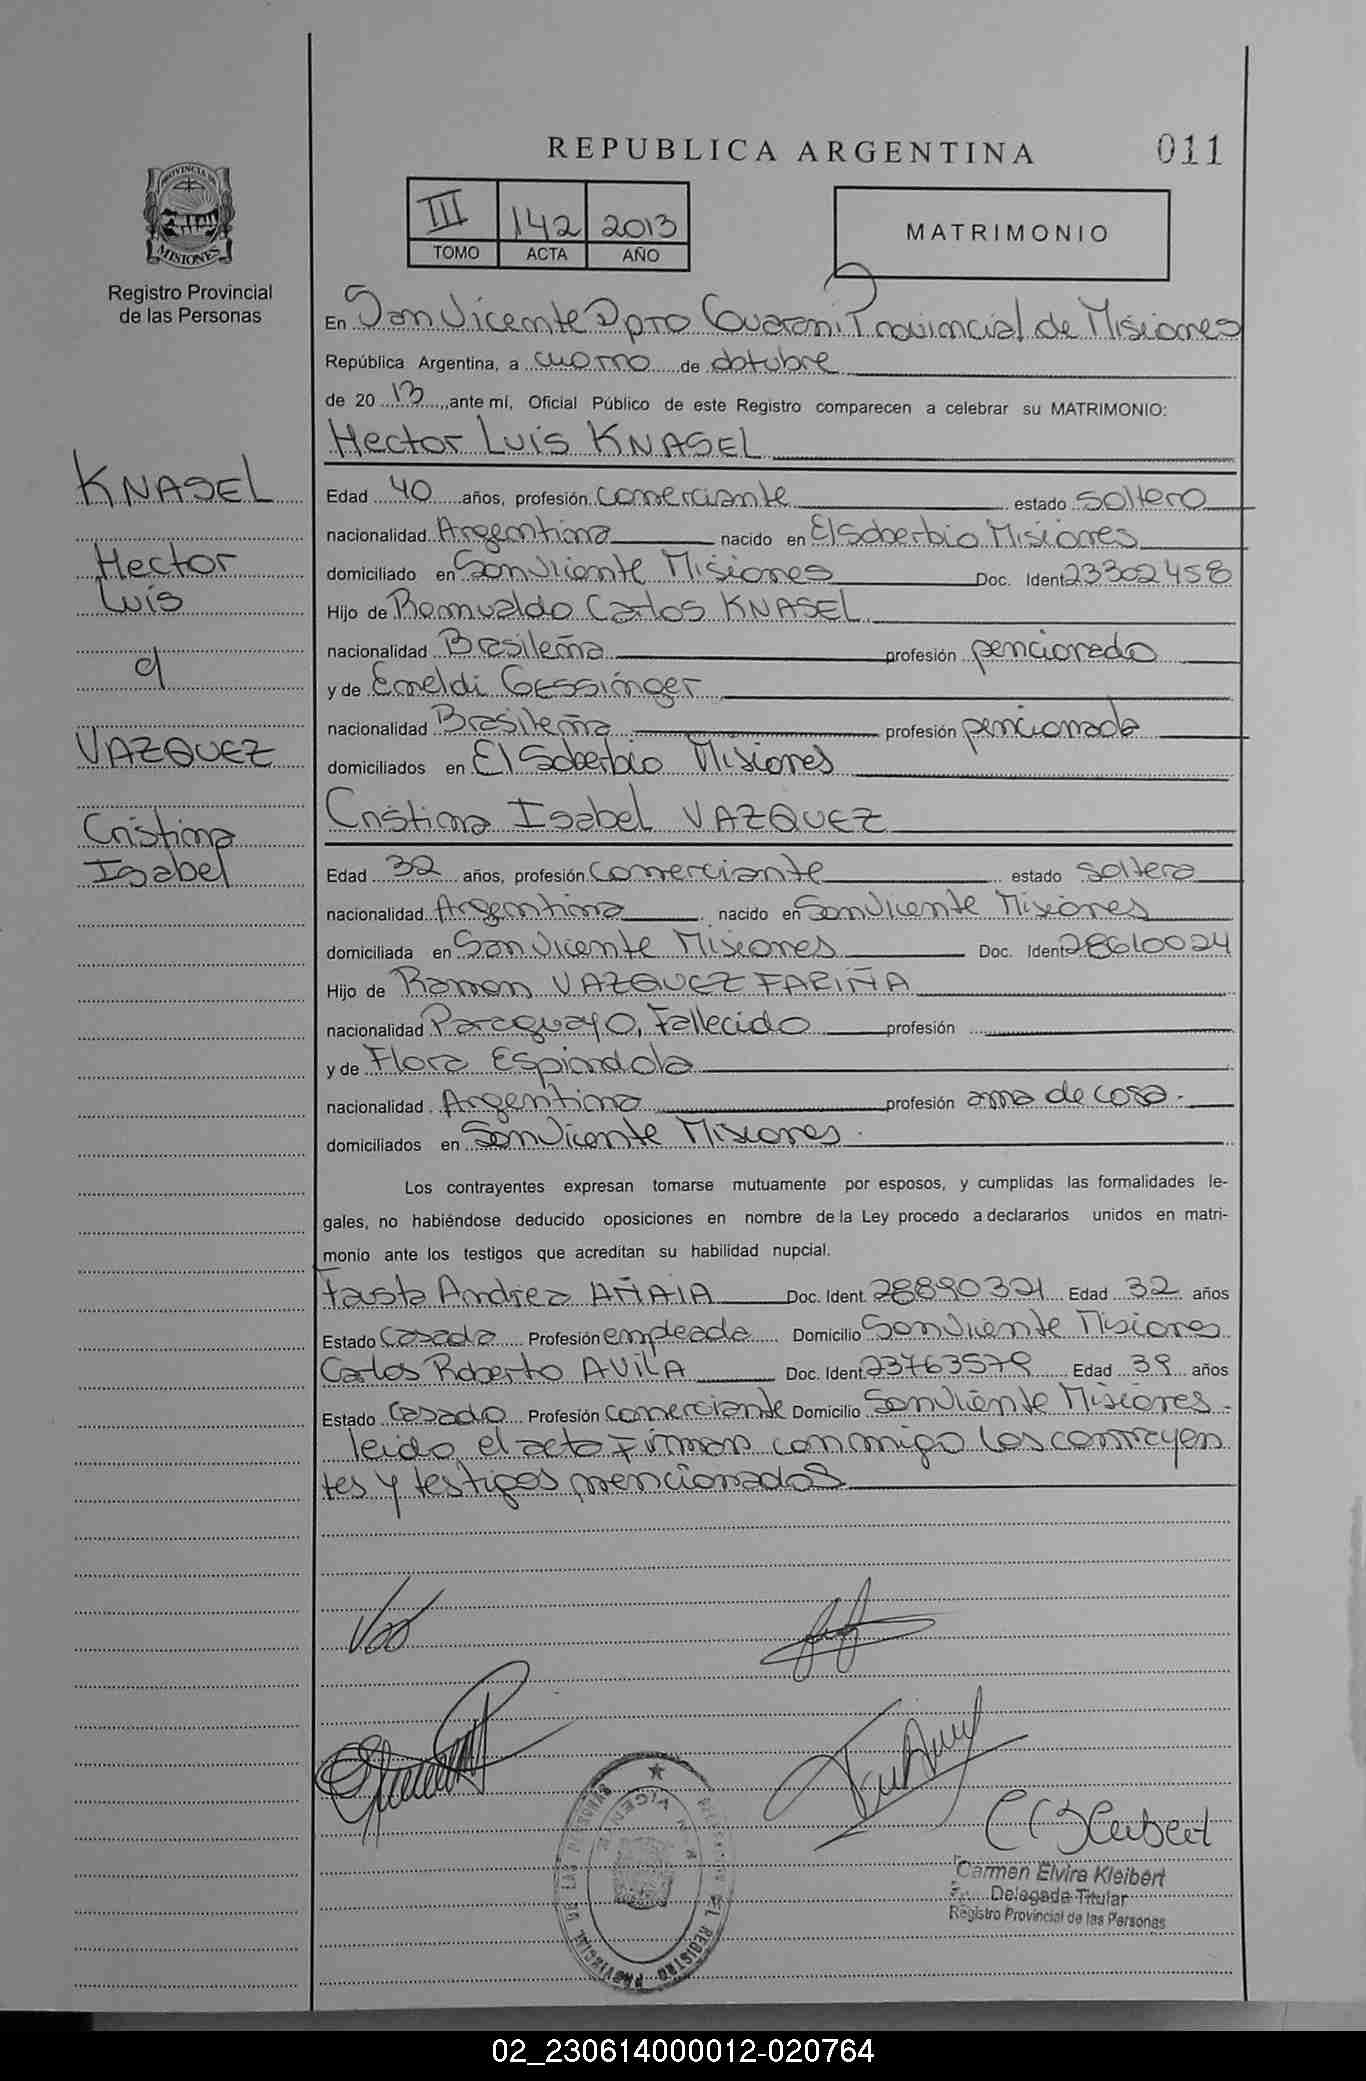 REPUBLICA ARGENTINA
011
PROVINCIA
MISIONES
Registro Provincial
de las Personas
III 142 2013
TOMO ACTA AÑO
MATRIMONIO
En San Vicente Dpto Guarani Provincial de Misiones
República Argentina, a cuatro de octubre
de 20 13, ante mí, Oficial Público de este Registro comparecen a celebrar su MATRIMONIO:
Hector Luis KNASEL
KNASEL
Hector
Luis
VAZQUEZ
Cristina
Isabel
Edad 40 años, profesión comerciante estado soltero
nacionalidad Argentina nacido en El Soberbio Misiones
domiciliado en San Vicente Misiones Doc. Ident 23302458
Hijo de Romualdo Carlos KNASEL
nacionalidad Brasileña profesión pencionado
y de Emeldi GESSinger
nacionalidad Brasileña profesión pencionada
domiciliados en El Soberbio Misiones
Cristina Isabel VAZQUEZ
Edad 32 años, profesión comerciante estado soltera
nacionalidad Argentina nacido en San Vicente Misiones
domiciliada en San Vicente Misiones Doc. Ident 28610024
Hijo de Ramon VAZQUEZ FARIÑA
nacionalidad Paraguayo, Fallecido profesión
y de Flora Espindola
nacionalidad Argentina profesión ama de casa.
domiciliados en San Vicente Misiones.
Los contrayentes expresan tomarse mutuamente por esposos, y cumplidas las formalidades le-
gales, no habiéndose deducido oposiciones en nombre de la Ley procedo a declararlos unidos en matri-
monio ante los testigos que acreditan su habilidad nupcial.
Fausta Andrea AÑAIA Doc. Ident. 28890321 Edad 32 años
Estado Casada Profesión empleada Domicilio San Vicente Misiones
Carlos Roberto AVILA Doc. Ident. 23763579 Edad 39 años
Estado Casado Profesión comerciante Domicilio San Vicente Misiones.
leido el acta Firman conmigo los contrayen
tes y testigos mencionados
Carmen Elvira Kleibert
Delegada Titular
Registro Provincial de las Personas
02_230614000012-020764